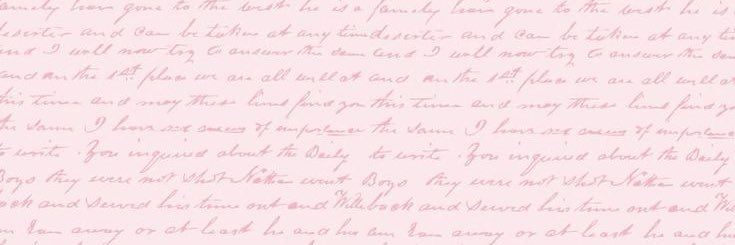 family have gone to the west he is a family have gone to the west he is
deserter and can be taken at any time deserter and can be taken at any
and I will now try to answer the same and I will now try to answer the same
and on the 1st place we are all well at and on the 1st place we are all well at
this time and may these lines find you this time and may these lines find you
the same I have not of importance the same I have not of importance
to write . You inquired about the Daily to write . You inquired about the Daily
Boys they were not shot went Boys they were not shot went
back and served his time out and Will back and served his time out and
away or at least he and his away or at least he and